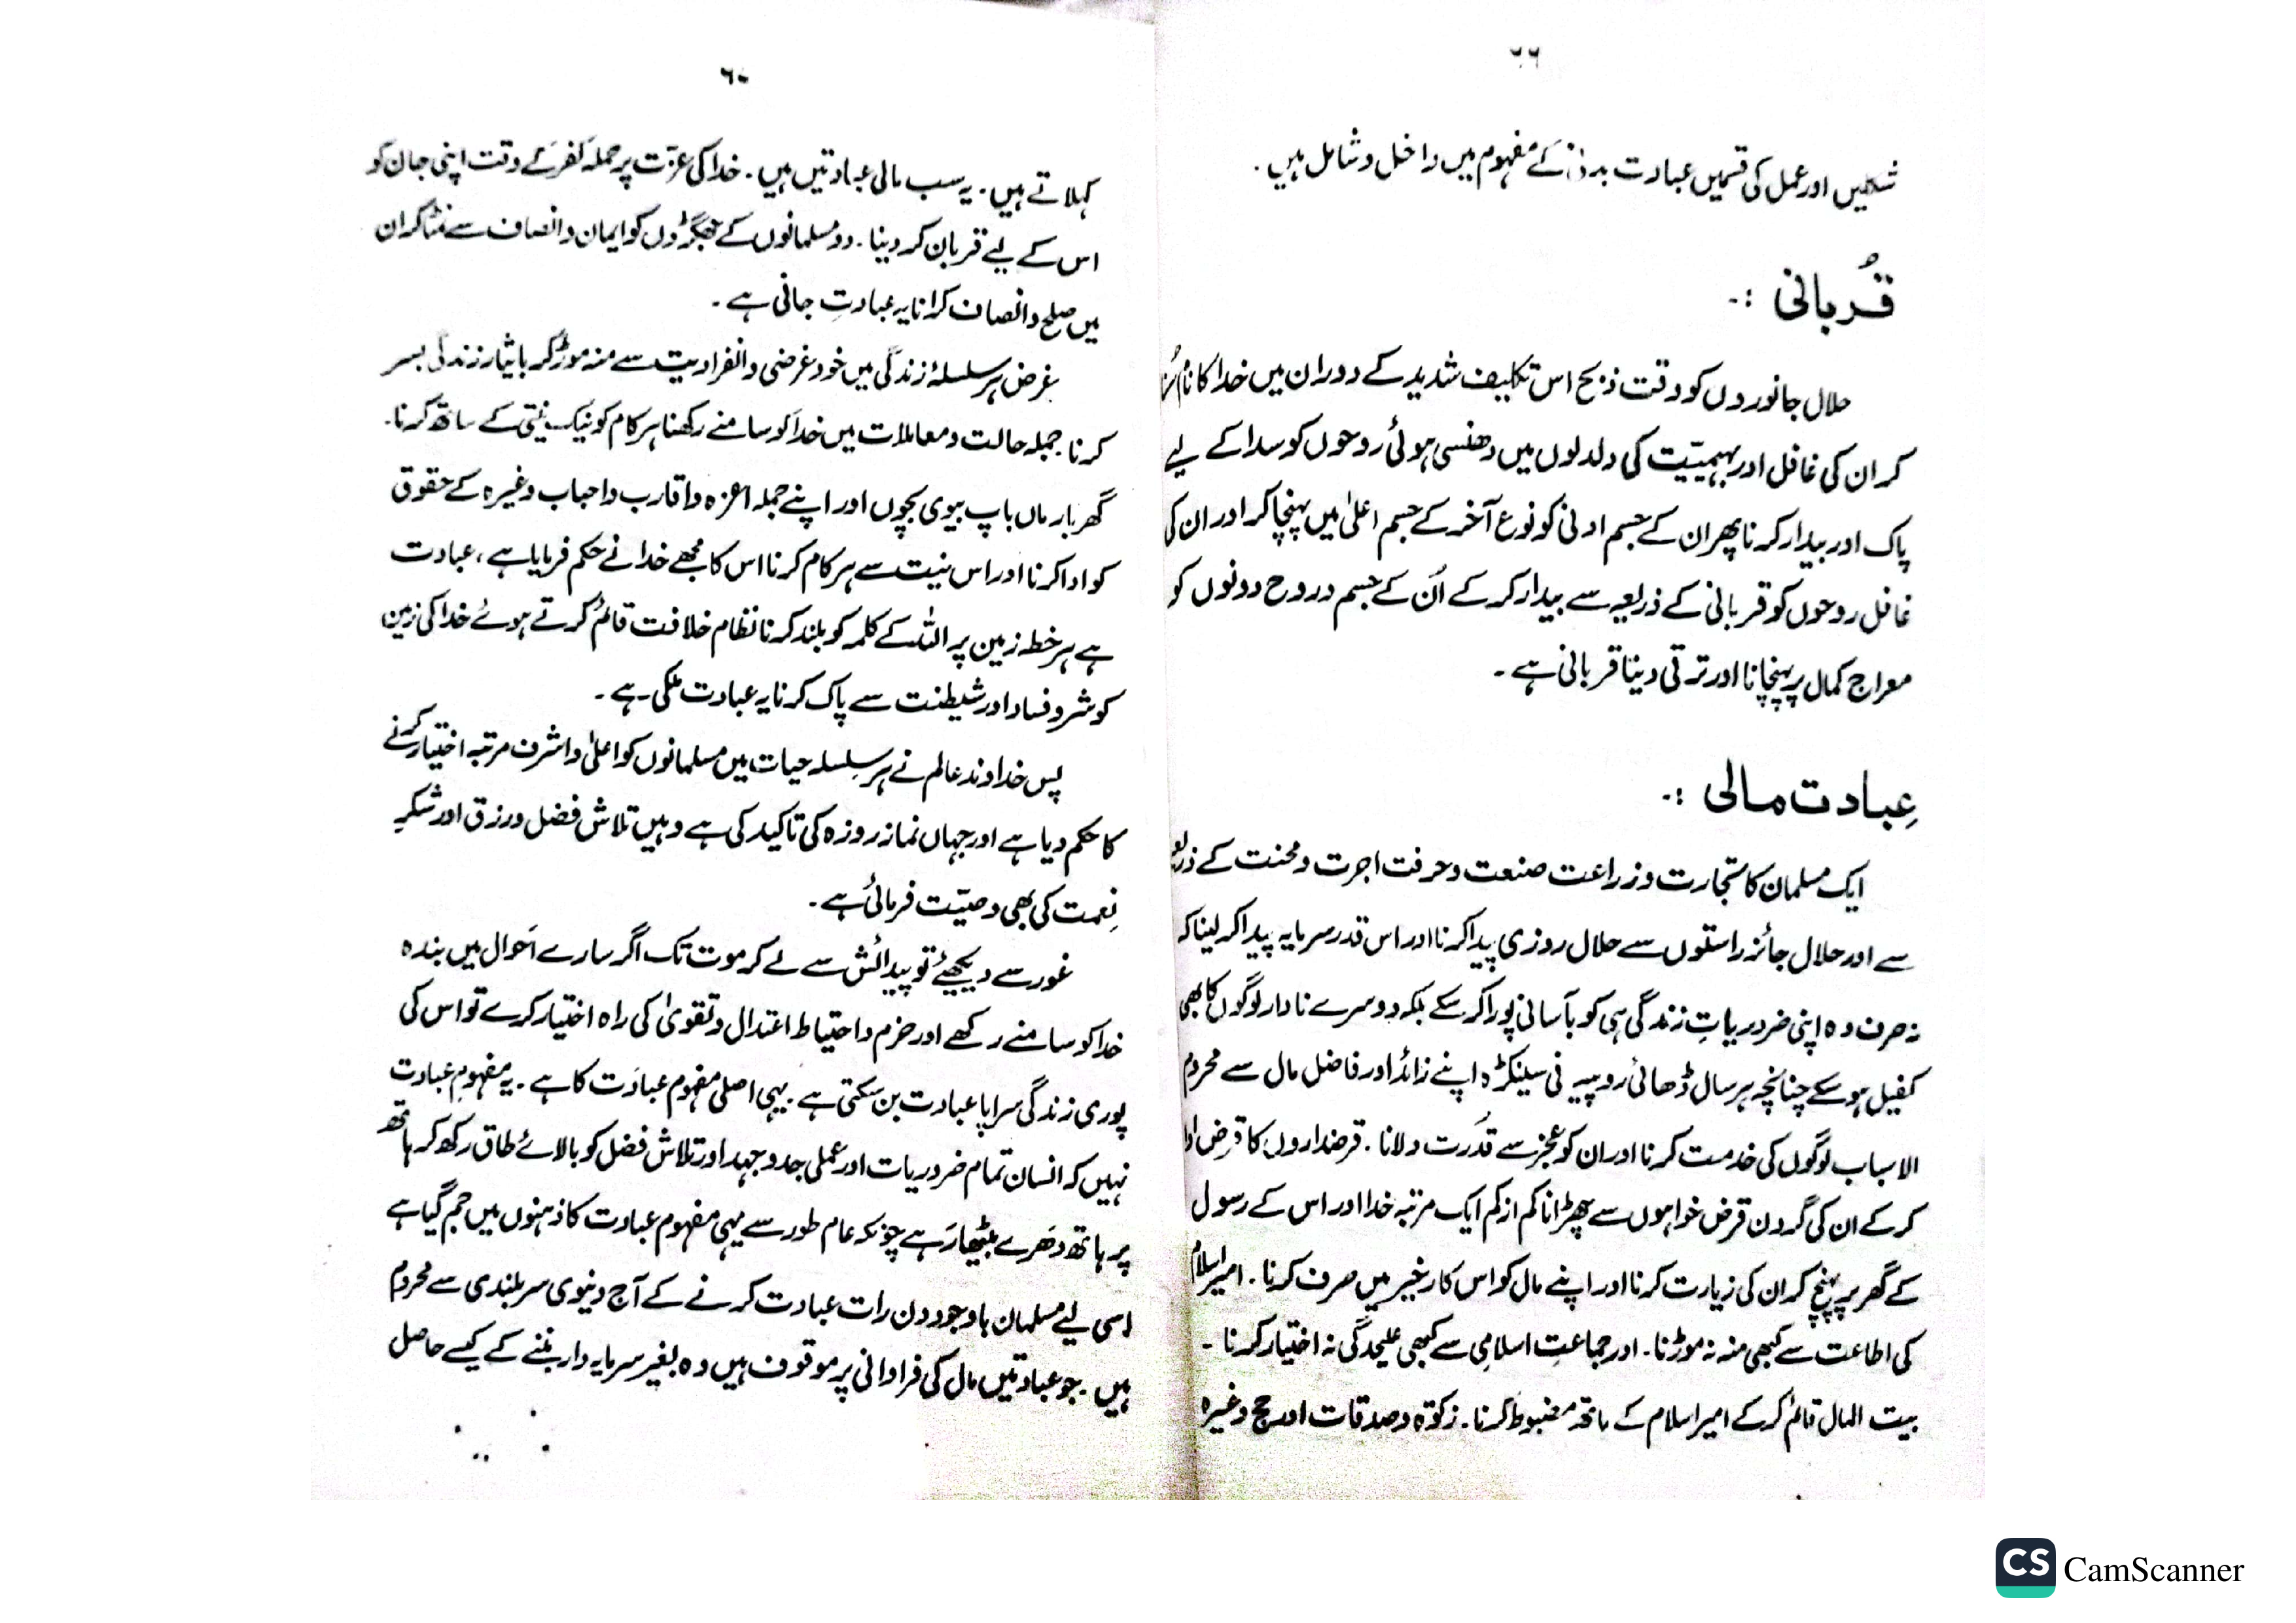 ۶۶
شکلیں اور عمل کی قسمیں عبادت بدنی کے مفہوم میں داخل و شامل ہیں ۔
قُربانی :۔
حلال جانوروں کو وقت ذبح اس تکلیف شدید کے دوران میں خدا کا نام سُنا
کر ان کی غافل اور بہیمیّت کی دلدلوں میں دھنسی ہوئی روحوں کو سدا کے لیے
پاک اور بیدار کرنا پھر ان کے جسم ادنیٰ کو نوع آخر کے جسم اعلیٰ میں پہنچا کر اور ان کی
غافل روحوں کو قربانی کے ذریعہ سے بیدار کر کے اُن کے جسم و روح دونوں کو
معراج کمال پر پہنچانا اور ترقی دینا قربانی ہے ۔
عِبادت مالی :۔
ایک مسلمان کا تجارت و زراعت صنعت و حرفت اجرت و محنت کے
سے اور حلال جائز راستوں سے حلال روزی پیدا کرنا اور اس قدر سرمایہ پیدا کر لینا کہ
نہ صرف وہ اپنی ضروریاتِ زندگی ہی کو بآسانی پورا کر سکے بلکہ دوسرے نادار لوگوں کا بھی
کفیل ہو سکے چنانچہ ہر سال ڈھائی روپیہ فی سینکڑہ اپنے زائد اور فاضل مال سے محروم
الاسباب لوگوں کی خدمت کرنا اور ان کو عجز سے قدرت دلانا ۔ قرضداروں کا قرض ادا
کر کے ان کی گردن قرض خواہوں سے چھڑانا کم از کم ایک مرتبہ خدا اور اس کے رسول
کے گھر پر پہنچ کر ان کی زیارت کرنا اور اپنے مال کو اس کارخیر میں صرف کرنا ۔ امیر اسلام
کی اطاعت سے کبھی منہ نہ موڑنا ۔ اور جماعتِ اسلامی سے کبھی علیحدگی نہ اختیار کرنا ۔
بیت المال قائم کر کے امیر اسلام کے ہاتھ مضبوط کرنا ۔ زکوٰۃ و صدقات اور حج وغیرہ
۶۰
کہلاتے ہیں ۔ یہ سب مالی عبادتیں ہیں ۔ خدا کی عزت پر حملہ کفر کے وقت اپنی جان کو
اس کے لیے قربان کر دینا ۔ دو مسلمانوں کے جھگڑوں کو ایمان و انصاف سے نمٹا کر ان
میں صلح و انصاف کرانا یہ عبادتِ جانی ہے ۔
غرض ہر سلسلۂ زندگی میں خود غرضی و انفرادیت سے منہ موڑ کر بایثار زندگی بسر
کرنا جملہ حالت و معاملات میں خدا کو سامنے رکھنا ہر کام کو نیک نیتی کے ساتھ کرنا ۔
گھر بار ماں باپ بیوی بچوں اور اپنے جملہ اعزہ و اقارب و احباب وغیرہ کے حقوق
کو ادا کرنا اور اس نیت سے ہر کام کرنا اس کا مجھے خدا نے حکم فرمایا ہے ، عبادت
ہے ہر خطہ زمین پر اللہ کے کلمہ کو بلند کرنا نظام خلافت قائم کرتے ہوئے خدا کی زمین
کو شر و فساد اور شیطنت سے پاک کرنا یہ عبادت ملکی ہے ۔
پس خداوند عالم نے ہر سلسلہ حیات میں مسلمانوں کو اعلیٰ و اشرف مرتبہ اختیار کرنے
کا حکم دیا ہے اور جہاں نماز روزہ کی تاکید کی ہے وہیں تلاش فضل و رزق اور شکر
نِعمت کی بھی وصیّت فرمائی ہے ۔
غور سے دیکھیئے تو پیدائش سے لے کر موت تک اگر سارے اَحوال میں بندہ
خدا کو سامنے رکھے اور حزم و احتیاط اعتدال و تقویٰ کی راہ اختیار کرے تو اس کی
پوری زندگی سراپا عبادت بن سکتی ہے ۔ یہی اصلی مفہوم عبادَت کا ہے ۔ یہ مفہومِ عبادت
نہیں کہ انسان تمام ضروریات اور عملی جدوجہد اور تلاش فضل کو بالائے طاق رکھ کر ہاتھ
پر ہاتھ دَھرے بیٹھا رَہے چونکہ عام طور سے یہی مفہوم عبادت کا ذہنوں میں جم گیا ہے
اسی لیے مسلمان باوجود دن رات عبادت کرنے کے آج دنیوی سر بلندی سے محروم
ہیں ۔ جو عبادتیں مال کی فراوانی پر موقوف ہیں وہ بغیر سرمایہ دار بننے کے کیسے حاصل
CS CamScanner